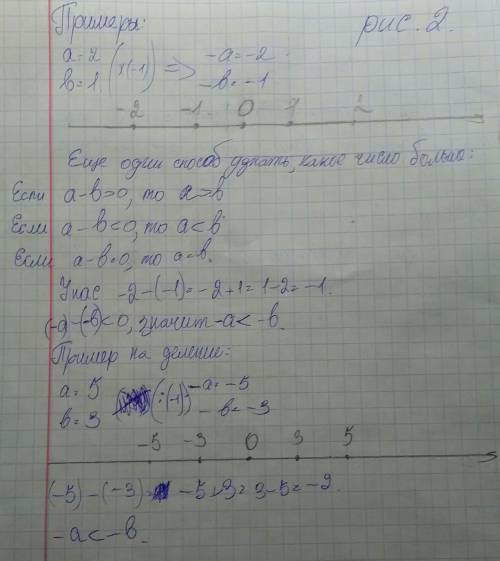 Примеры:
рис. 2.
a=2 (×(-1)) => -a=-2
b=1 -b=-1
-2 -1 0 1 2
Еще один способ узнать, какое число больше:
Если a-b>0, то a>b
Если a-b<0, то a<b
Если a-b=0, то a=b.
У нас -2-(-1)=-2+1=1-2=-1.
(-a)-(-b)<0, значит -a<-b.
Пример на деление:
a=5 (:(-1)) -a=-5
b=3 -b=-3
-5 -3 0 3 5
(-5)-(-3)= -5+3=3-5=-2.
-a<-b.